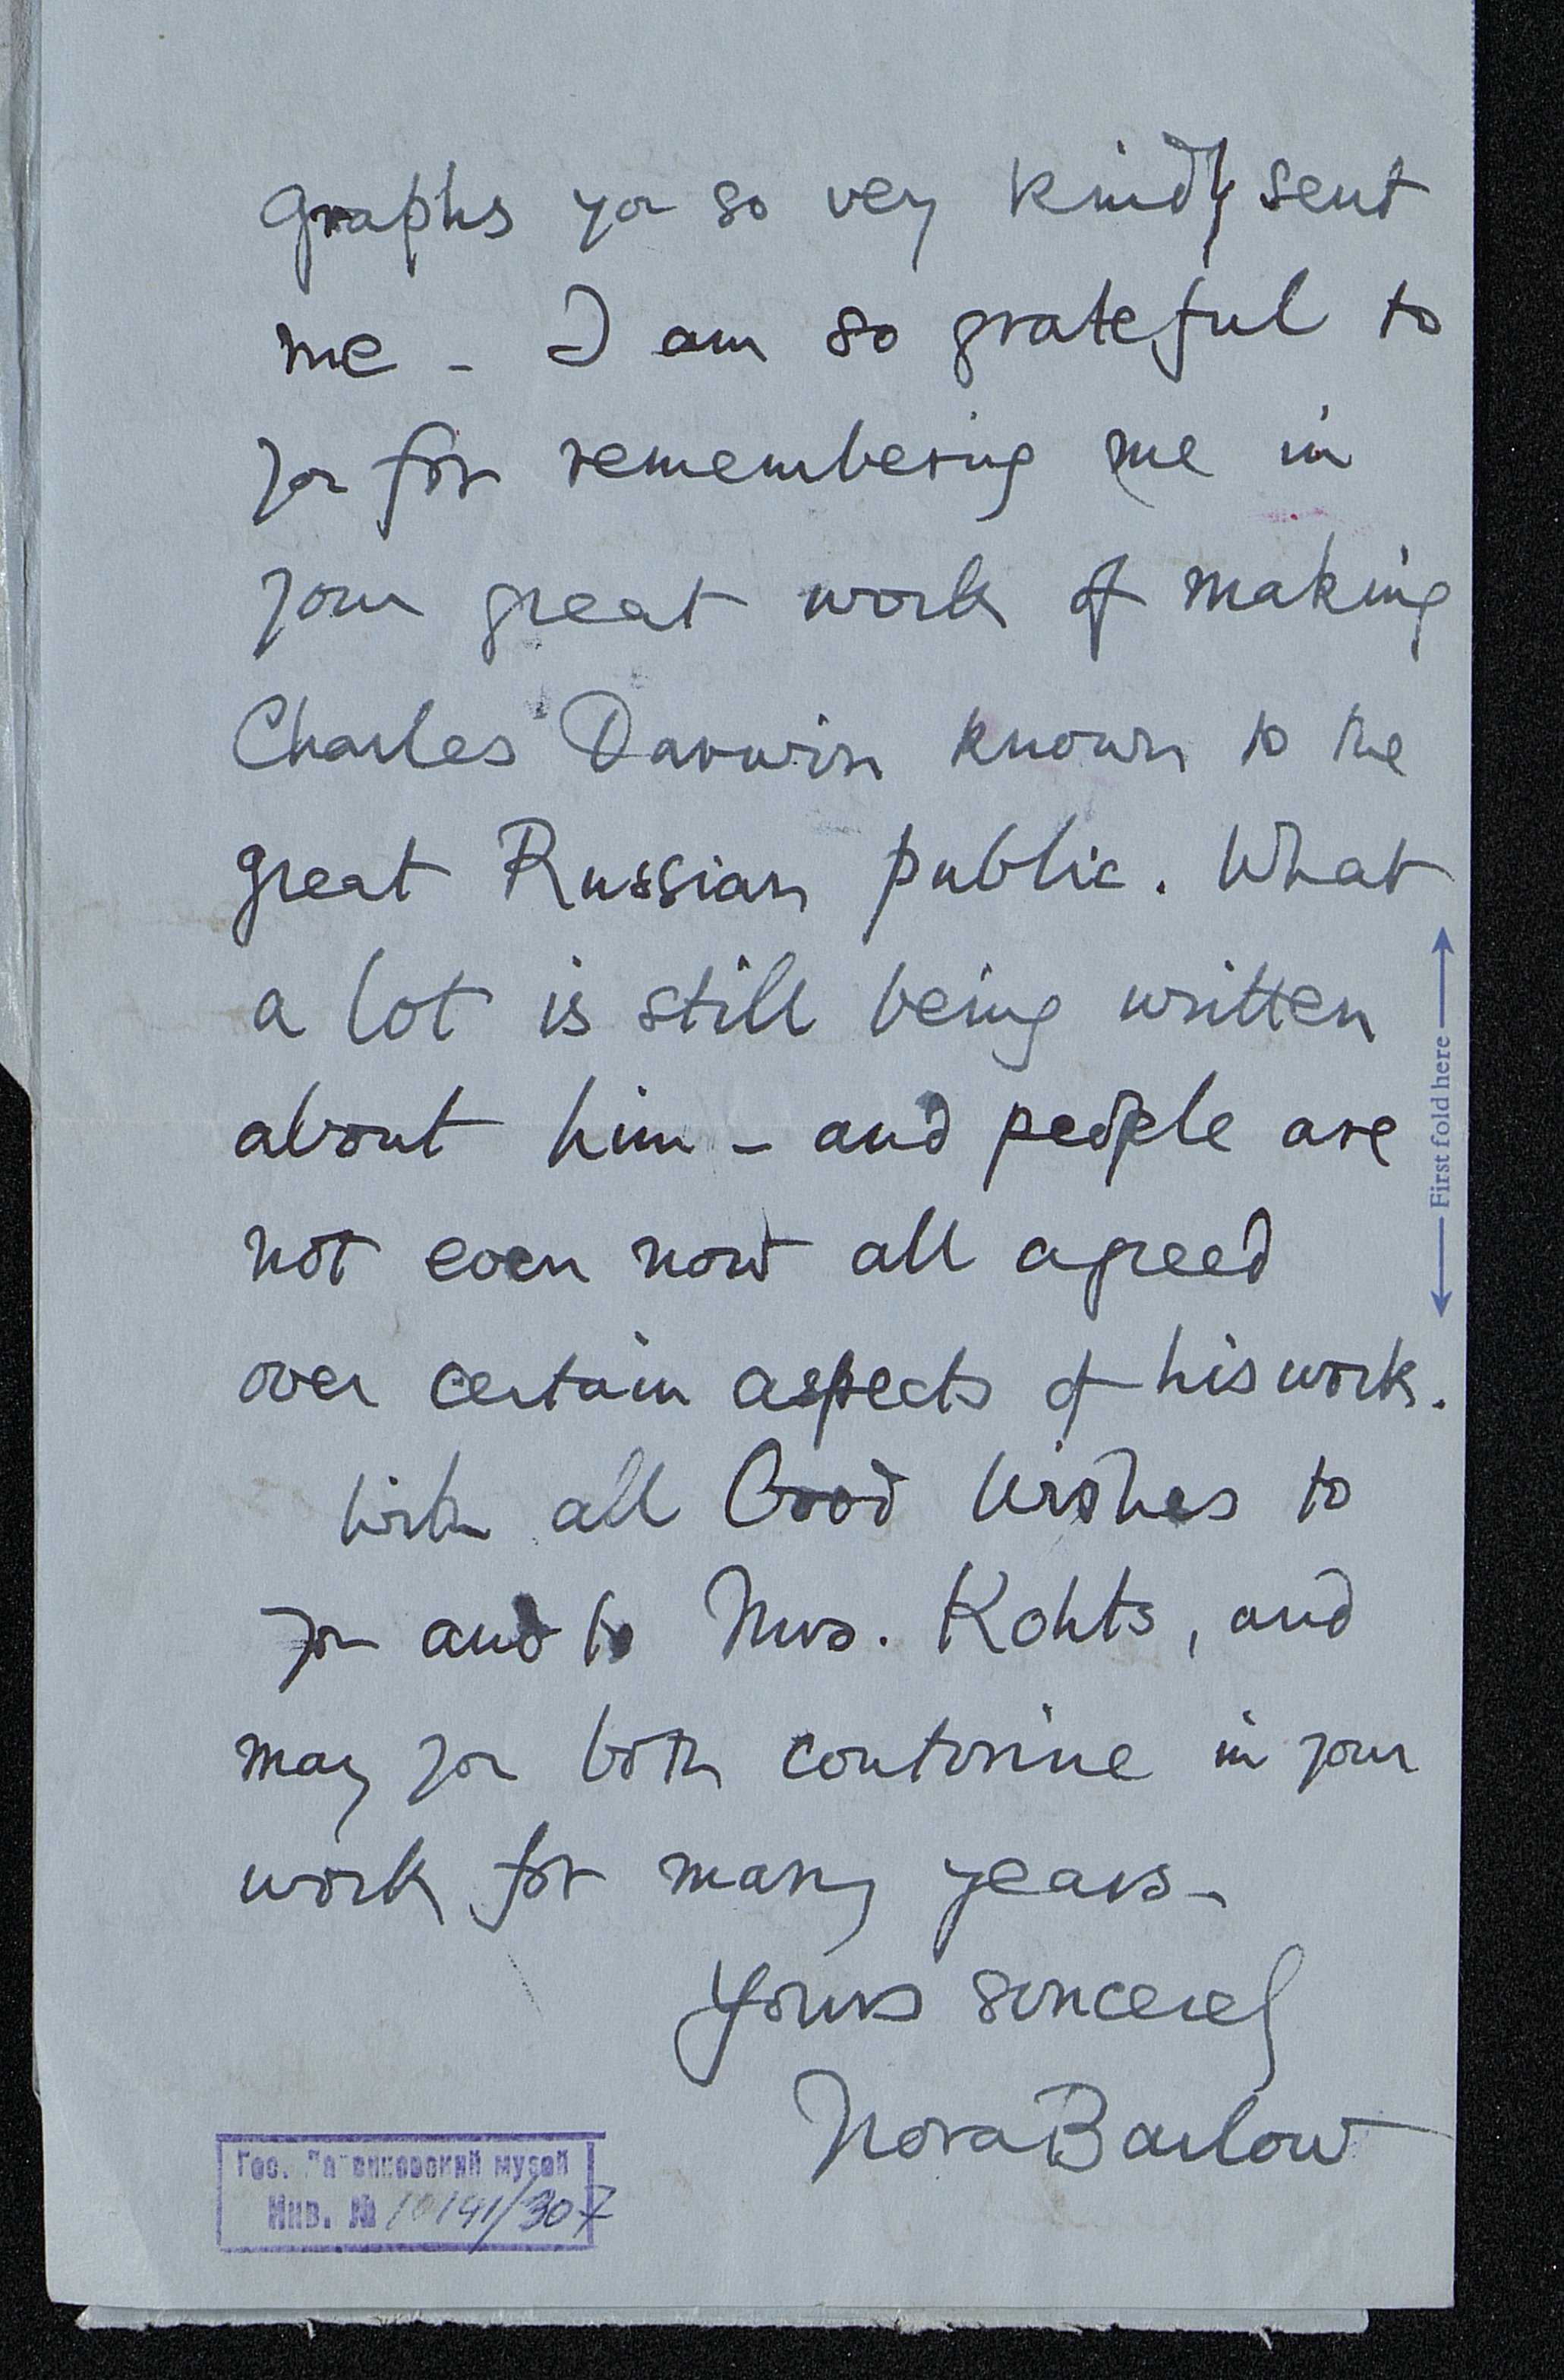 graphs you so very kindly sent
me - I am so grateful to
you for remembering me in
your great work of making
Charles Darwin known to the
great Russian public. What
a lot is still being written
about him - and people are
not even now all agreed
over certain aspects of his work.
With all Good Wishes to
you and to Mrs. Kohts, and
may you both continue in your
work for many years -
Yours sincerely
Nora Barlow
← First fold here →
Гос. Дарвиновский музей
Инв. № 10141/307